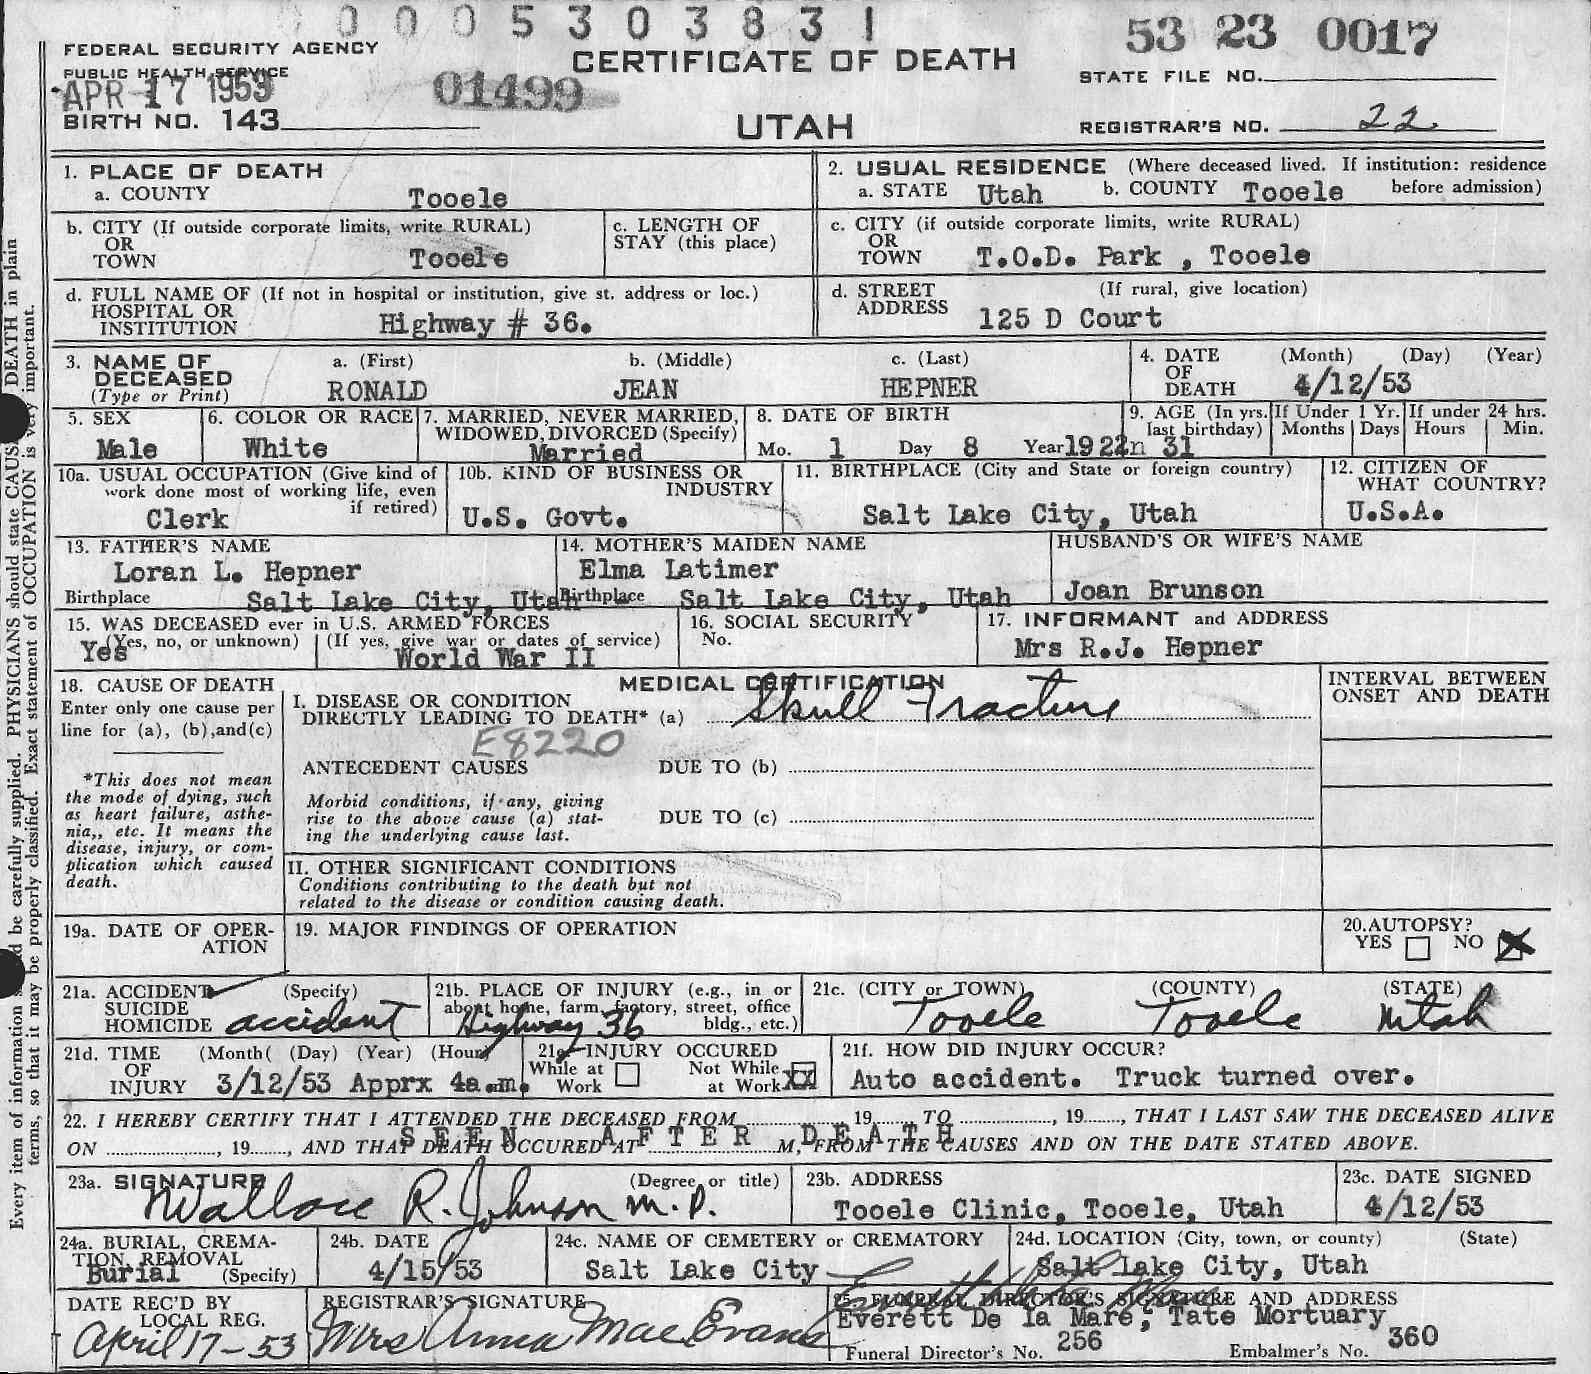 0005303831
53 23 0017
FEDERAL SECURITY AGENCY
PUBLIC HEALTH SERVICE
APR 17 1953
01499
CERTIFICATE OF DEATH
STATE FILE NO.
BIRTH NO. 143
UTAH
REGISTRAR'S NO. 22
1. PLACE OF DEATH
a. COUNTY Tooele
2. USUAL RESIDENCE (Where deceased lived. If institution: residence before admission)
a. STATE Utah b. COUNTY Tooele
b. CITY (If outside corporate limits, write RURAL)
OR
TOWN Tooele
c. LENGTH OF
STAY (this place)
c. CITY (if outside corporate limits, write RURAL)
OR
TOWN T.O.D. Park , Tooele
d. FULL NAME OF (If not in hospital or institution, give st. address or loc.)
HOSPITAL OR
INSTITUTION Highway # 36.
d. STREET (If rural, give location)
ADDRESS 125 D Court
3. NAME OF
DECEASED
(Type or Print)
a. (First) b. (Middle) c. (Last)
RONALD JEAN HEPNER
4. DATE (Month) (Day) (Year)
OF
DEATH 4/12/53
5. SEX
Male
6. COLOR OR RACE
White
7. MARRIED, NEVER MARRIED,
WIDOWED, DIVORCED (Specify)
Married
8. DATE OF BIRTH
Mo. 1 Day 8 Year 1922
9. AGE (In yrs. last birthday) 31
If Under 1 Yr. Months Days
If under 24 hrs. Hours Min.
10a. USUAL OCCUPATION (Give kind of
work done most of working life, even
if retired)
Clerk
10b. KIND OF BUSINESS OR
INDUSTRY
U.S. Govt.
11. BIRTHPLACE (City and State or foreign country)
Salt Lake City, Utah
12. CITIZEN OF
WHAT COUNTRY?
U.S.A.
13. FATHER'S NAME
Loran L. Hepner
Birthplace Salt Lake City, Utah
14. MOTHER'S MAIDEN NAME
Elma Latimer
Birthplace Salt Lake City, Utah
HUSBAND'S OR WIFE'S NAME
Joan Brunson
15. WAS DECEASED ever in U.S. ARMED FORCES
(Yes, no, or unknown) (If yes, give war or dates of service)
Yes World War II
16. SOCIAL SECURITY
No.
17. INFORMANT and ADDRESS
Mrs R.J. Hepner
18. CAUSE OF DEATH
Enter only one cause per
line for (a), (b),and(c)
*This does not mean
the mode of dying, such
as heart failure, asthe-
nia,, etc. It means the
disease, injury, or com-
plication which caused
death.
MEDICAL CERTIFICATION
I. DISEASE OR CONDITION
DIRECTLY LEADING TO DEATH* (a) Skull Fracture
E8220
ANTECEDENT CAUSES DUE TO (b)
Morbid conditions, if any, giving
rise to the above cause (a) stat-
ing the underlying cause last.
DUE TO (c)
II. OTHER SIGNIFICANT CONDITIONS
Conditions contributing to the death but not
related to the disease or condition causing death.
INTERVAL BETWEEN
ONSET AND DEATH
19a. DATE OF OPER-
ATION
19. MAJOR FINDINGS OF OPERATION
20.AUTOPSY?
YES NO X
21a. ACCIDENT (Specify)
SUICIDE
HOMICIDE accident
21b. PLACE OF INJURY (e.g., in or
about home, farm, factory, street, office
bldg., etc.)
Highway 36
21c. (CITY or TOWN) (COUNTY) (STATE)
Tooele Tooele Utah
21d. TIME (Month( (Day) (Year) (Hour)
OF
INJURY 3/12/53 Apprx 4a.m.
21e. INJURY OCCURED
While at Work Not While at Work XX
21f. HOW DID INJURY OCCUR?
Auto accident. Truck turned over.
22. I HEREBY CERTIFY THAT I ATTENDED THE DECEASED FROM 19 TO , 19 , THAT I LAST SAW THE DECEASED ALIVE
ON , 19 , AND THAT DEATH OCCURED AT M, FROM THE CAUSES AND ON THE DATE STATED ABOVE.
SEEN AFTER DEATH
23a. SIGNATURE (Degree or title)
Wallace R. Johnson M.D.
23b. ADDRESS
Tooele Clinic, Tooele, Utah
23c. DATE SIGNED
4/12/53
24a. BURIAL, CREMA-
TION, REMOVAL
Burial (Specify)
24b. DATE
4/15/53
24c. NAME OF CEMETERY or CREMATORY
Salt Lake City
24d. LOCATION (City, town, or county) (State)
Salt Lake City, Utah
DATE REC'D BY
LOCAL REG.
April 17-53
REGISTRAR'S SIGNATURE
Mrs Anna Mae Evans
25. FUNERAL DIRECTOR'S SIGNATURE AND ADDRESS
Everett De la Mare; Tate Mortuary
Funeral Director's No. 256 Embalmer's No. 360
Every item of information be carefully supplied. PHYSICIANS should state CAUSE DEATH in plain
terms, so that it may be properly classified. Exact statement of OCCUPATION is very important.